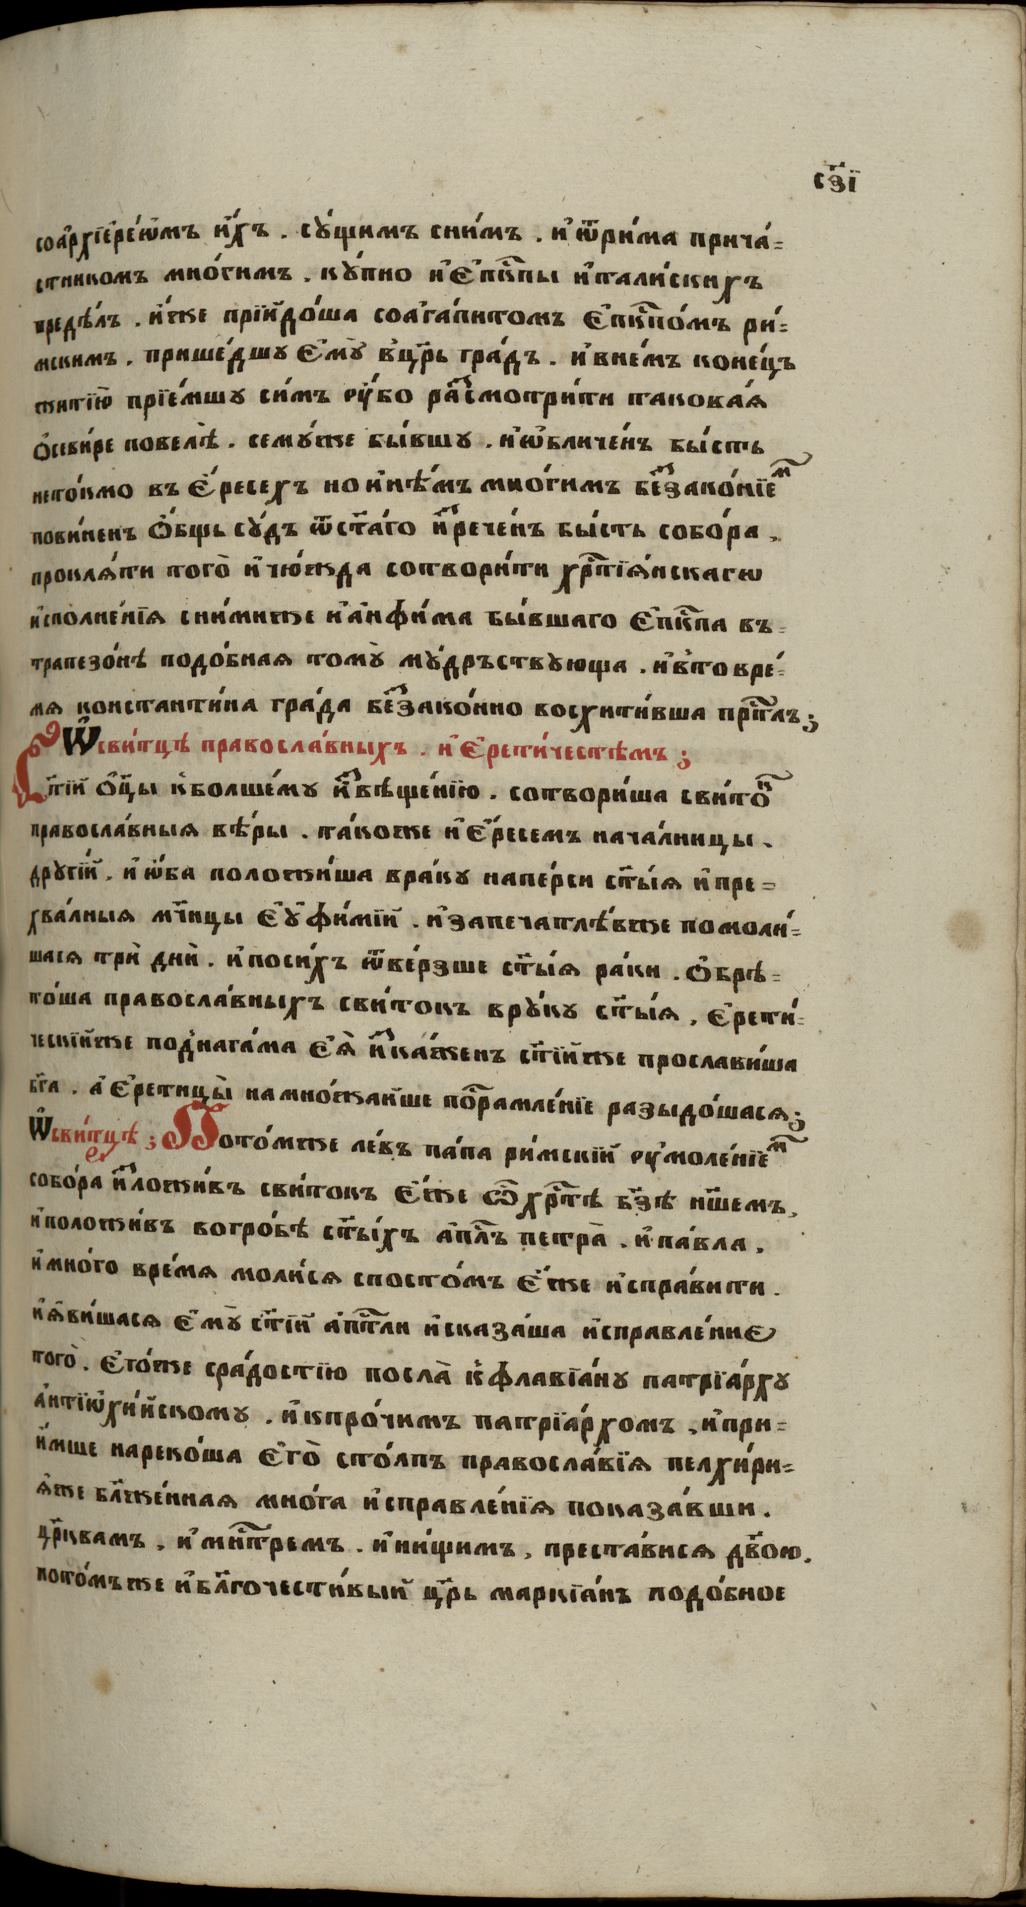 с҃зі
соа҆рхїере́ѡмъ и҆́хъ . сꙋ́щимъ сни́мъ . и҆ѿри́ма прича́=
стникомъ мно́гимъ . кꙋ́пно и҆є҆пⷭ҇кпы и҆тали́скихъ
предѣ́лъ . и҆́же прїидо́ша соа҆гапитомъ є҆пⷭ҇кпо́мъ ри́=
мскимъ . прише́дшꙋ є҆мꙋ̀ вцр҃ь гра́дъ . и҆вне́мъ коне́цъ
житїю̀ прїе́мшꙋ си́мъ ᲂу҆́бо раⷥ҇смотри́ти такова́ѧ
ѻ҆севи́ре повелѣ̀ . семꙋ́же бы́вшꙋ . и҆ѡ҆бличе́нъ бы́сть
нето́кмо въ є҆́ресехъ но и҆нѣ́мъ мно́гимъ беⷥ҇зако́нїеⷨ
пови́ненъ ѻ҆́бщь сꙋ́дъ ѿст҃а́го и҆ⷥ҇рече́нъ бы́сть собо́ра .
проклѧ́ти того̀ и҆чю́жда сотвори́ти хрⷭ҇тїѧ́нскагѡ
и҆сполне́нїѧ сни́миже и҆а҆нфи́ма бы́вшаго є҆пⷭ҇кпа въ=
трапезо́нѣ подо́бная томꙋ̀ мꙋ́дръствꙋюща . и҆вто вре́=
мѧ константи́на гра́да беⷥ҇зако́нно восхити́вша прⷭ҇тлъ ;
Ѡ҆сви́тцѣ правосла́вныхъ . и҆ є҆рети́честѣмъ ;
Ст҃іи ѻ҆ц҃ы кбо́лшемꙋ и҆ⷥ҇вѣще́нїю . сотвори́ша свитоⷦ҇
правосла́вныѧ вѣ́ры . та́коже и҆ є҆́ресемъ нача́лницы .
дрꙋгі́и . и҆ ѡ҆́ба положи́ша вра́кꙋ напе́рси ст҃ы́ѧ и҆пре=
хва́лныѧ мч҃ницы є҆ѵ҆фи́мїи . и҆запечатлѣ́вше помоли́=
шасѧ трѝ днѝ . и҆поси́хъ ѿве́рзше ст҃ы́ѧ ра́ки . ѻ҆брѣ=
то́ша правосла́вныхъ сви́токъ врꙋ́кꙋ ст҃ы́ѧ , є҆рети́=
ческїиже под̾нага́ма є҆ѧ̀ и҆ⷥ҇ка́женъ ст҃і́иже просла́виша
бг҃а . а҆ є҆ретицы̀ намно́жайше поⷭ҇рамле́нїе разыдо́шасѧ ;
Ѡ҆сви́тцѣ ; Пото́мже ле́въ па́па ри́мскїй ᲂу҆моле́нїеⷨ
собо́ра и҆ⷥ҇ложи́въ сви́токъ є҆́же ѡ҆хрⷭ҇тѣ̀ бз҃ѣ нш҃емъ ,
и҆положи́въ вогро́бѣ ст҃ы́хъ а҆пⷭ҇лъ петра̀ . и҆па́вла .
и҆мно́го вре́мѧ моли́сѧ спосто́мъ є҆́же и҆спра́вити .
и҆ꙗ҆ви́шасѧ є҆мꙋ̀ ст҃іи а҆пⷭ҇тли и҆сказа́ша и҆справле́ние
того̀ . є҆го́же сра́достїю посла̀ кфлавїа́нꙋ патрїа́рхꙋ
а҆нтїѡхи́йскомꙋ . и҆кпро́чимъ патрїа́рхомъ , и҆при=
и҆́мше нареко́ша є҆го̀ сто́лпъ правосла́вїѧ пелхи́ри=
ѧ́же блж҃е́ннаѧ мно́га и҆справле́нїѧ показа́вши .
цр҃квамъ , и҆ мнⷭ҇трємъ . и҆ни́щимъ , преста́висѧ дв҃ою .
пото́мъже и҆бл҃гочести́вый цр҃ь маркїа́нъ подо́бное